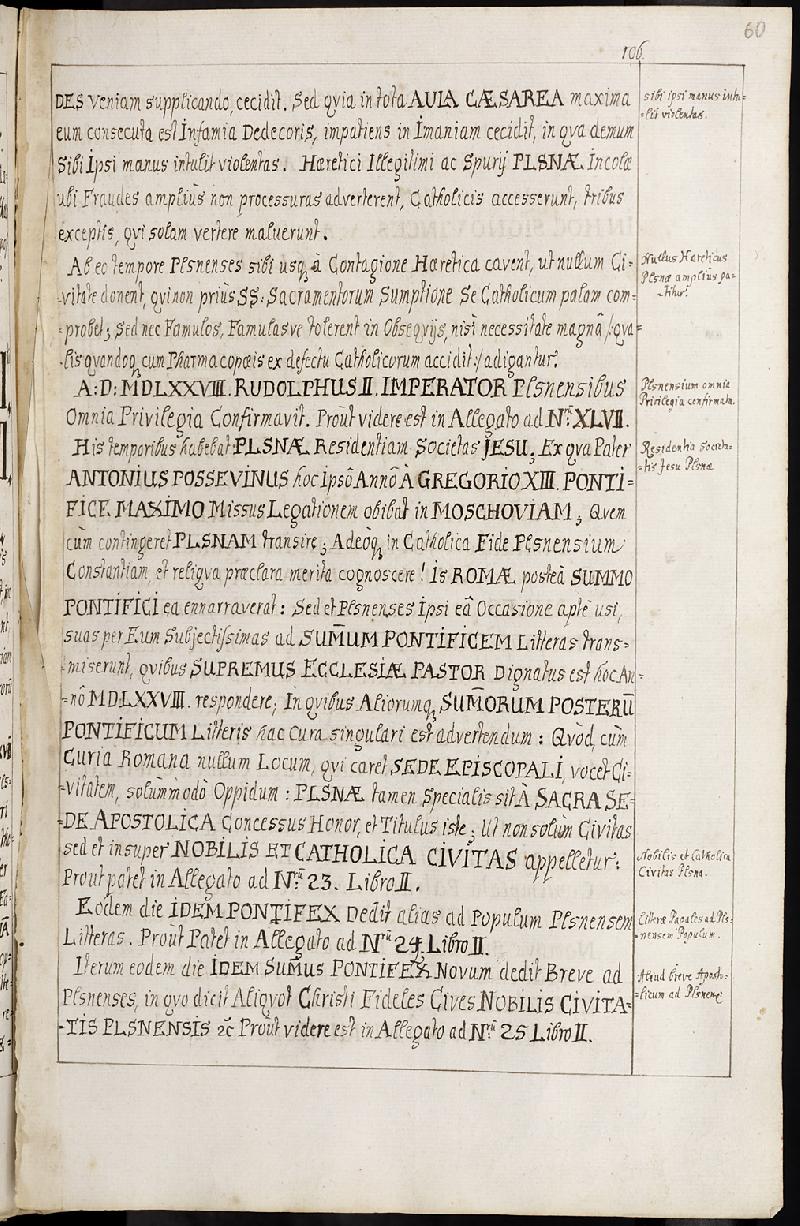 60
106.
DES veniam supplicando, cecidit. Sed qvia in tota AULA CÆSAREA maxima
eum consecuta est Infamia Dedecoris, impatiens in Imaniam cecidit, in qva demum
Sibi Ipsi manus intulit violentas. Hæretici Illegitimi ac Spurij PLSNÆ Incolæ
ubi Fraudes ampliùs non processuras adverterent, Catholicis accesserunt, tribus
exceptis, qvi solam vertere maluerunt.
Ab eo tempore Plsnenses sibi usq, à Contagione Hæretica cavent, ut nullum Ci=
=vitate donent, qvi non priùs SS: Sacramentorum Sumptione Se Catholicum palam com=
=probet; Sed nec Famulos, Famulasve tolerent in Obseqvijs, nisi necessitate magnâ /:qva=
=lis qvandoq, cum Pharmacopæis ex defectu Catholicorum accidit:/ adigantur.
A: D: MDLXXVIII. RUDOLPHUS II. IMPERATOR Plsnensibus
Omnia Privilegia Confirmavit. Proùt videre est in Allegato ad Nr̃ XLVII.
His temporibus habebat PLSNÆ Residentiam Societas JESU, Ex qva Pater
ANTONIUS POSSEVINUS hoc ipsô Annô À GREGORIO XIII. PONTI=
FICE MAXIMO Missus Legationem obibat in MOSCHOVIAM; Qvem
cùm contingeret PLSNAM transire; Adeòq, in Catholica Fide Plsnensium
Constantiam, et reliqva præclara merita cognoscere! is ROMÆ posteà SUMMO
PONTIFICI ea ennarraverat: Sed et Plsnenses Ipsi eâ Occasione aptè usi,
suas per Eum Subjectissimas ad SUM̃UM PONTIFICEM Litteras trans=
=miserunt, qvibus SUPREMUS ECCLESIÆ PASTOR Dignatus est hoc An=
=nô MDLXXVIII. respondere; In qvibus Aliorumq, SUM̃ORUM POSTERŨ
PONTIFICUM Litteris hac cura singulari est advertendum: Qvòd, cùm
Curia Romana nullum Locum, qvi caret SEDE EPISCOPALI, vocet Ci=
=vitatem, solùmmodò Oppidum: PLSNÆ tamen specialis sit À SACRA SE=
=DE APOSTOLICA Concessus Honor, et Titulus iste; Ut non solùm Civitas
sed et insuper NOBILIS ET CATHOLICA CIVITAS appelletur:
Prout patet in Allegato ad Nr̃ 23. Libro II.
Eodem die IDEM PONTIFEX Dedit alias ad Populum Plsnensem
Litteras. Proùt Patet in Allegato ad Nr̃ 24. Libro II.
Iterum eodem die IDEM SUM̃US PONTIFEX Novum dedit Breve ad
Plsnenses, in qvo dicit Aliqvot Christi Fideles Cives NOBILIS CIVITA=
=TIS PLSNENSIS &c Proùt videre est in Allegato ad Nr̃ 25 Libro II.
sibi ipsi manus intu=
=lit violentas.
Nullus Hæreticus
Plsnæ ampliùs pa=
=titur.
Plsnensium omnia
Privilegia confirmata.
Residentia Societa=
=tis Jesu Plsnæ
Nobilis et Catholica
Civitas Plsna.
Litteræ Papales ad Pls=
=nensem Populum.
Aliud breve Aposto=
=licum ad Plsnenses